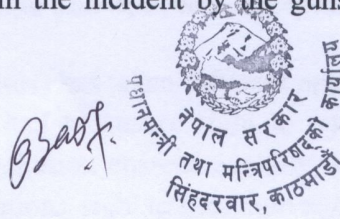 in the incident by the guns
नेपाल सरकार
प्रधानमन्त्री तथा मन्त्रिपरिषद्को कार्यालय
सिंहदरवार, काठमाडौं